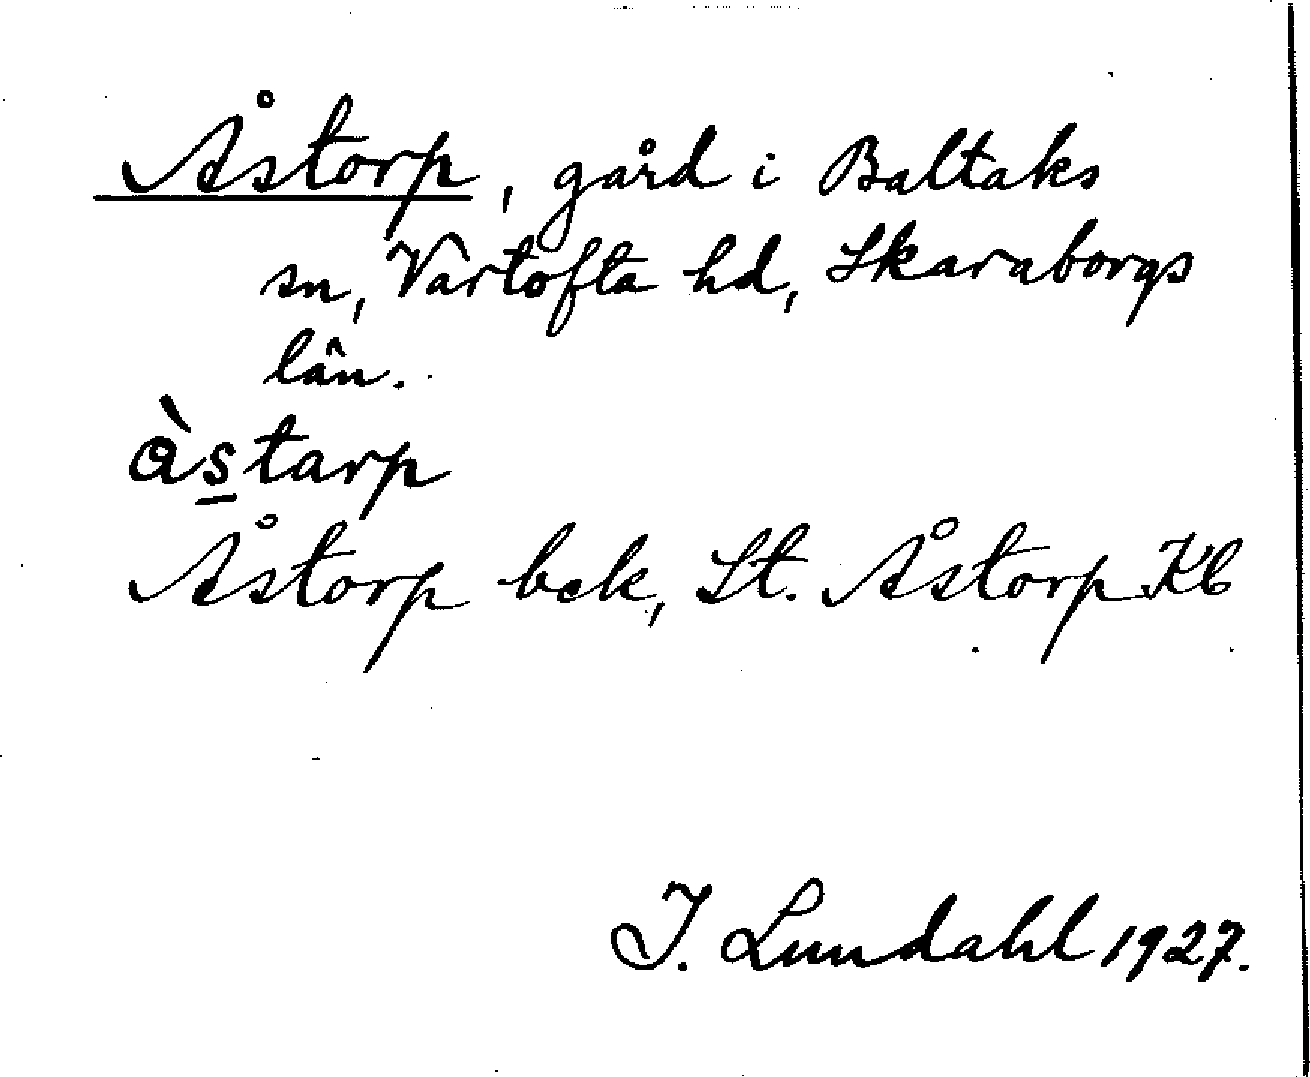 Åstorp, gård i Baltaks
sn, Vartofta hd, Skaraborgs
län.
ɑ̀s̲tarp
Åstorp bck, St. Åstorp Kb
I. Lundahl 1927.